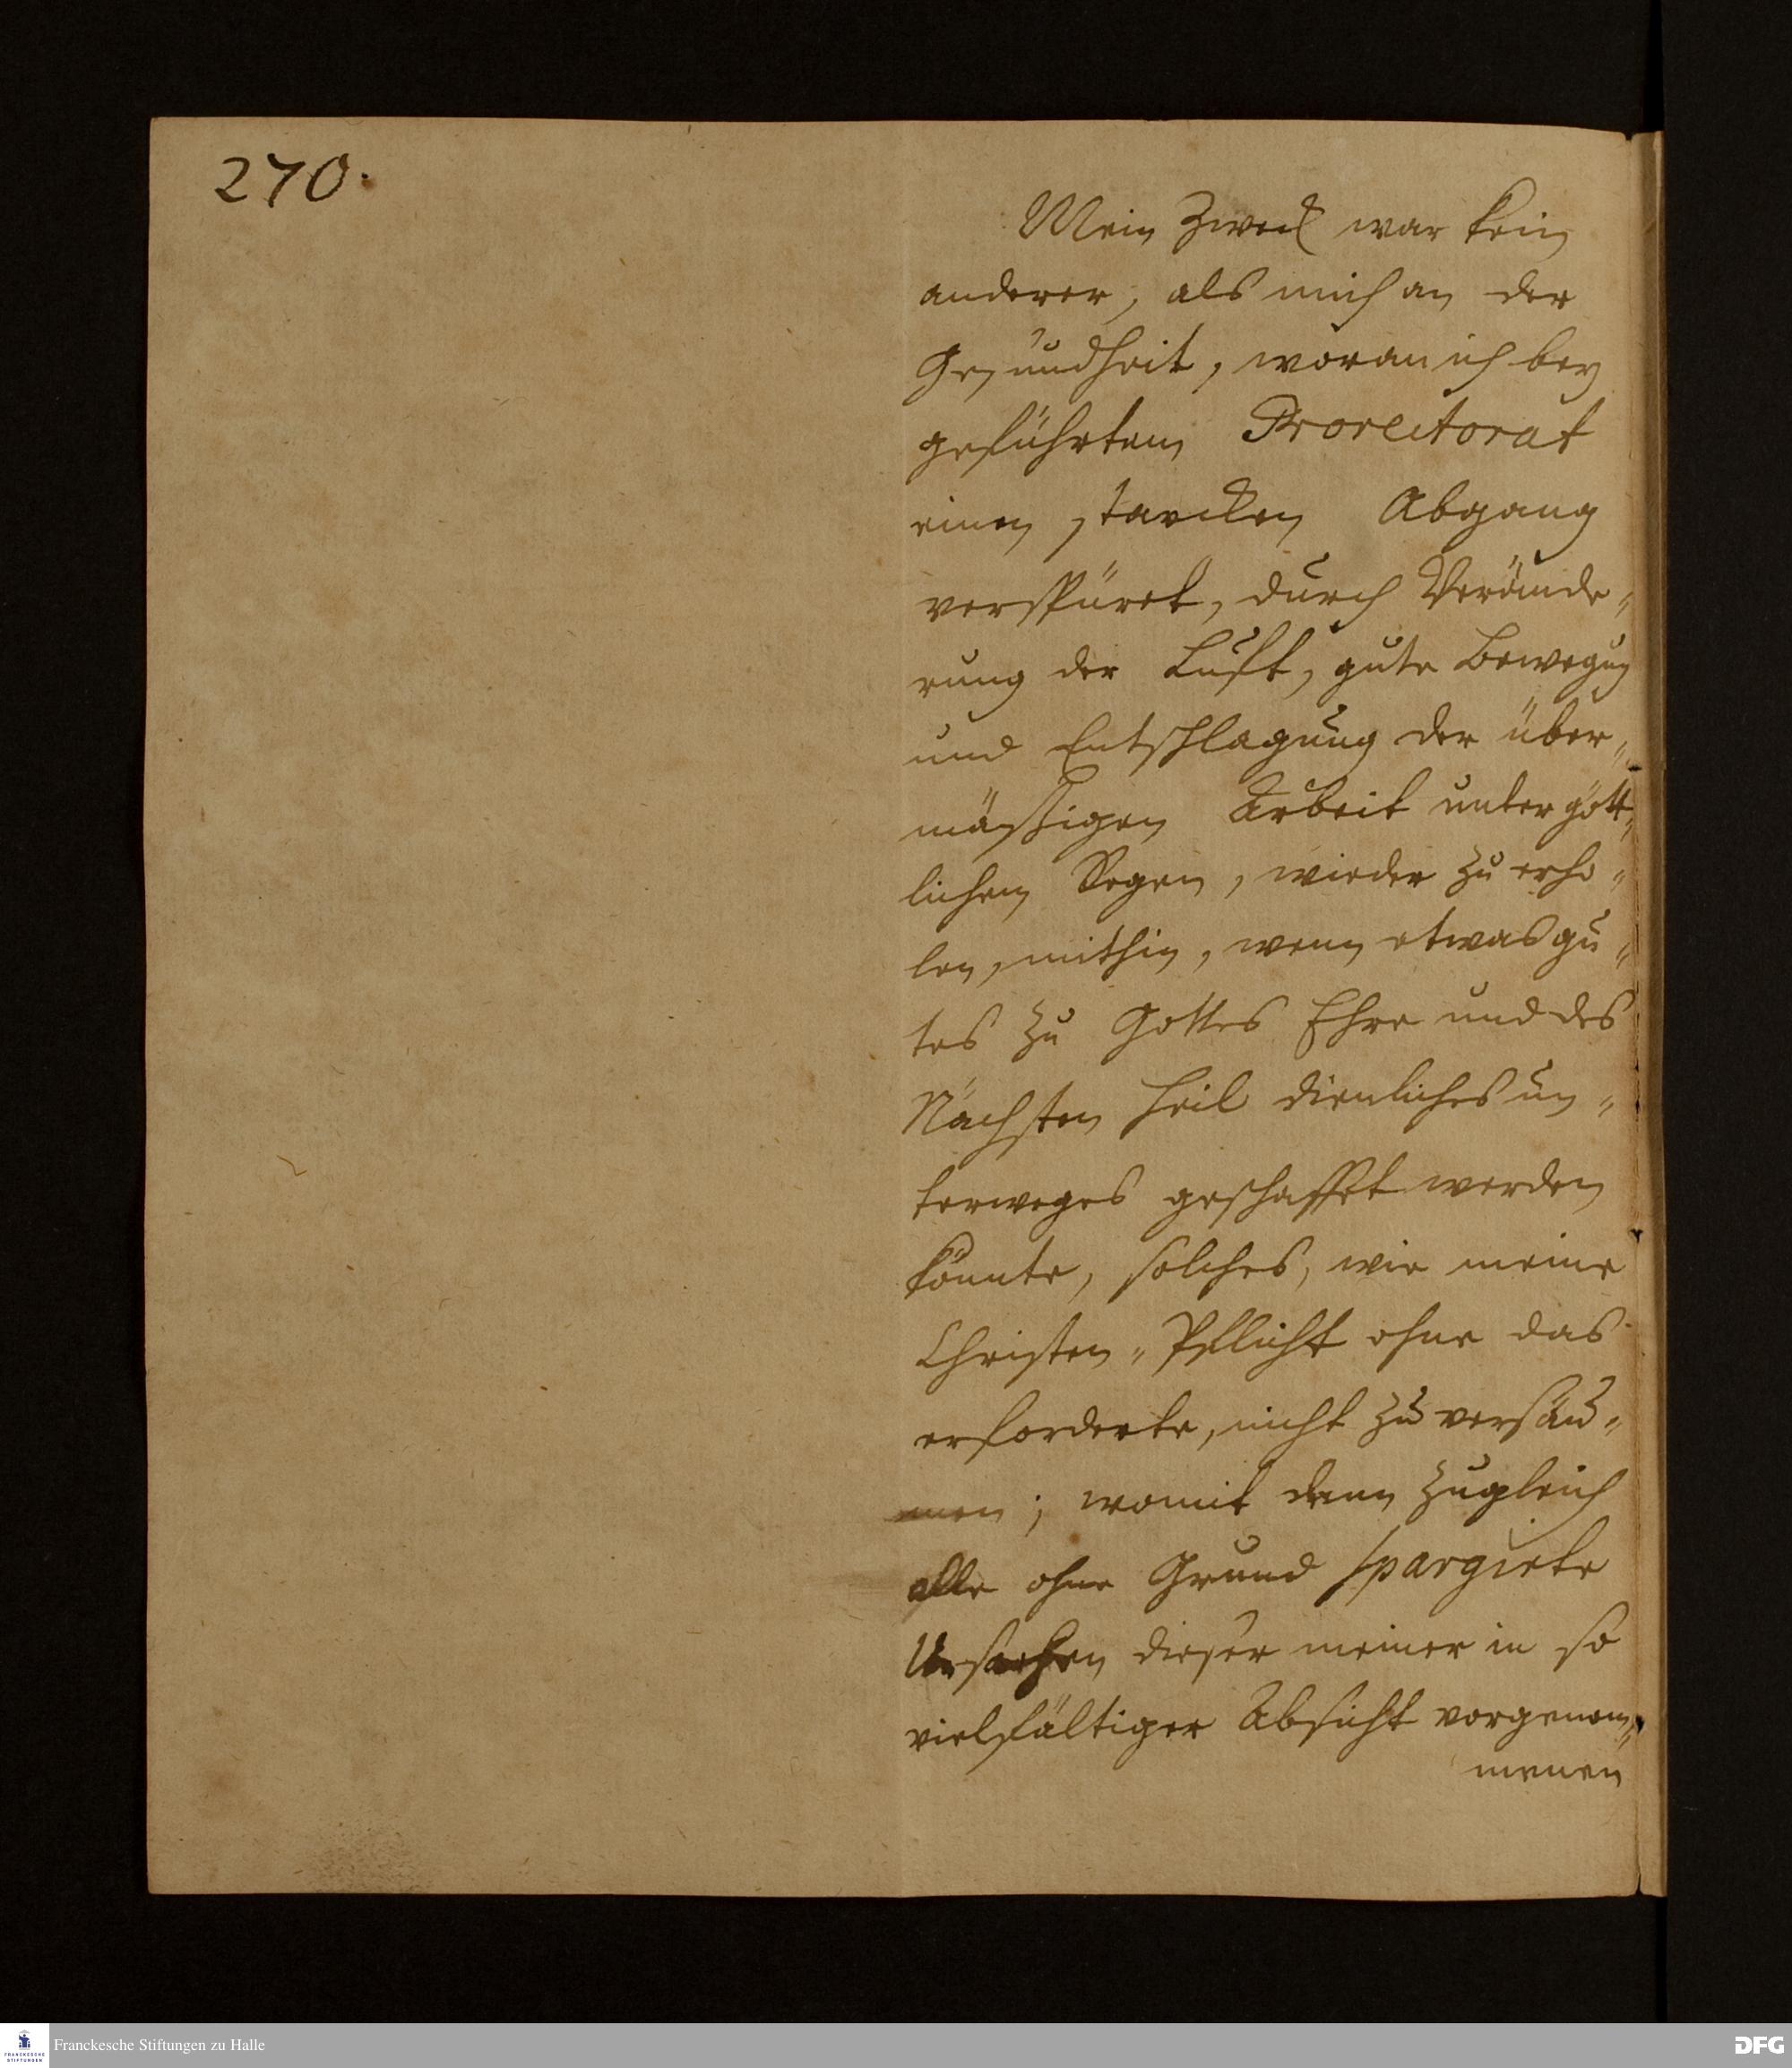 270.
Mein Zweck war kein
anderer, als mich an der
Gesundheit, woran ich bey
geführtem Prorectorat
einen starcken Abgang
verspüret, durch Verände„
rung der Luft, gute Bewegung
und Entschlagung der über„
mäßigen Arbeit unter gött„
lichem Segen, wieder zu erho„
len, mithin, wenn etwas gu„
tes zu Gottes Ehre und des
Nächsten Heil dienliches un„
terweges geschaffet werden
könnte, solches, wie meine
Christen„Pflicht ohne das
erforderte, nicht zu versäu„
men; womit denn zugleich
alle ohne Grund spargirte
Ursachen dieser meiner in so
vielfältiger Absicht vorgenom„
menen
Franckesche Stiftungen zu Halle
FRANCKESCHE STIFTUNGEN
DFG